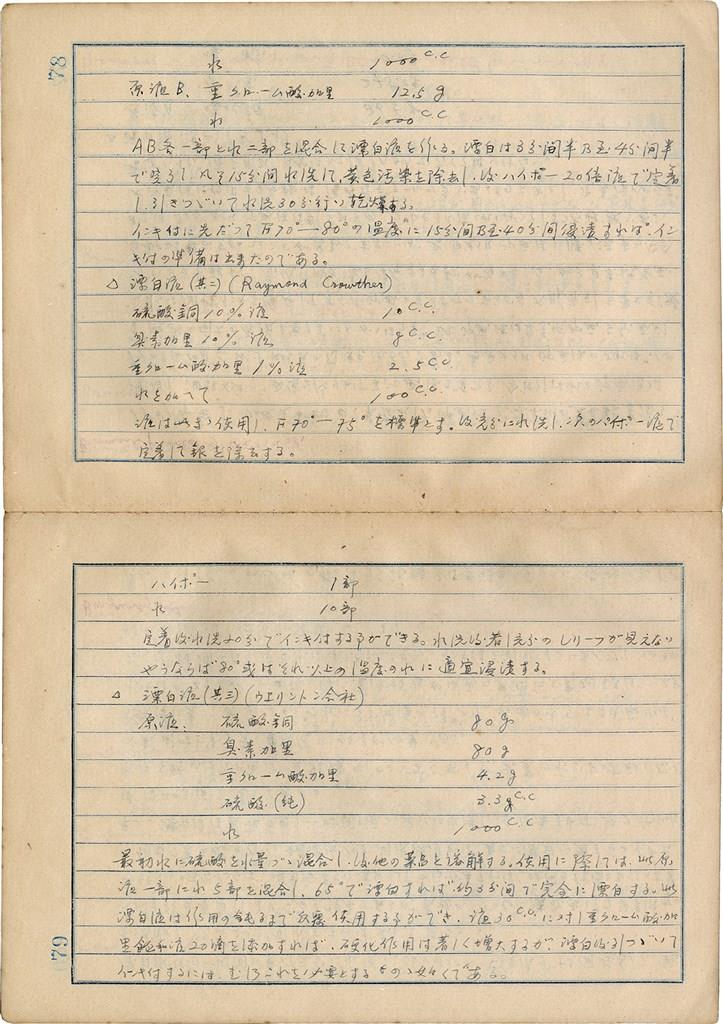 78
水 1000 c.c
原液B. 重クローム酸加里 12.5 g
水 1000 c.c
AB各一部と水二部を混合して漂白液を作る。漂白は3分間半乃至4分間半
で完了し、凡そ15分間水洗して、黄色汚染を除去し、後ハイポー20倍液で定着
し引きつづいて水洗30分行い乾燥する。
インキ付に先だって 70°—80°の温度に15分間乃至40分間浸漬すれば、イン
キ付の準備は出来たのである。
△ 漂白液(其二)(Raymond Crowther)
硫酸銅10%液 10 c.c.
臭素加里10%液 8 c.c.
重クローム酸加里1%液 2.5 c.c.
水を加へて 100 c.c.
液は使用し、70°—75°を標準とす。後充分に水洗し、次のハイポー液で
定着して銀を除去する。
ハイポー 1部
水 10部
定着後水洗20分でインキ付する事ができる。水洗後若し充分のレリーフが見えない
やうならば80°或はそれ以上の温度の水に適宜浸漬する。
△ 漂白液(其三)(ウエリントン会社)
原液. 硫酸銅 80 g
臭素加里 80 g
重クローム酸加里 4.2 g
硫酸(純) 3.3 c.c
水 1000 c.c
最初水に硫酸を少量づつ混合し、後他の薬品を溶解する。使用に際しては、此原
液一部に水5部を混合し、65°で漂白すれば約3分間で完全に漂白する。此
漂白液は作用の鈍るまで反覆使用する事ができ、液30 c.c.に対し重クローム酸加
里飽和液20滴を添加すれば、硬化作用は著しく増大するが、漂白後引つづいて
インキ付するには、むしろこれを必要とするものの如くである。
79